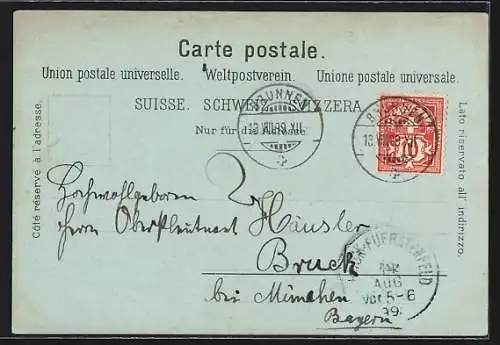 Carte postale.
Union postale universelle. Weltpostverein. Unione postale universale.
SUISSE. SCHWEIZ. SVIZZERA.
Nur für die Adresse.
Côté réservé à l'adresse.
Lato riservato all' indirizzo.
BRUNNEN
13.VIII.99.XII
BRUNNEN
13.VIII.99.XII
10
Hochwohlgeboren
Herrn Oberstleutnant Häusler
Bruck
bei München
Bayern
BRUCK-FUERSTENFELD
AUG
Vor 5-6
99